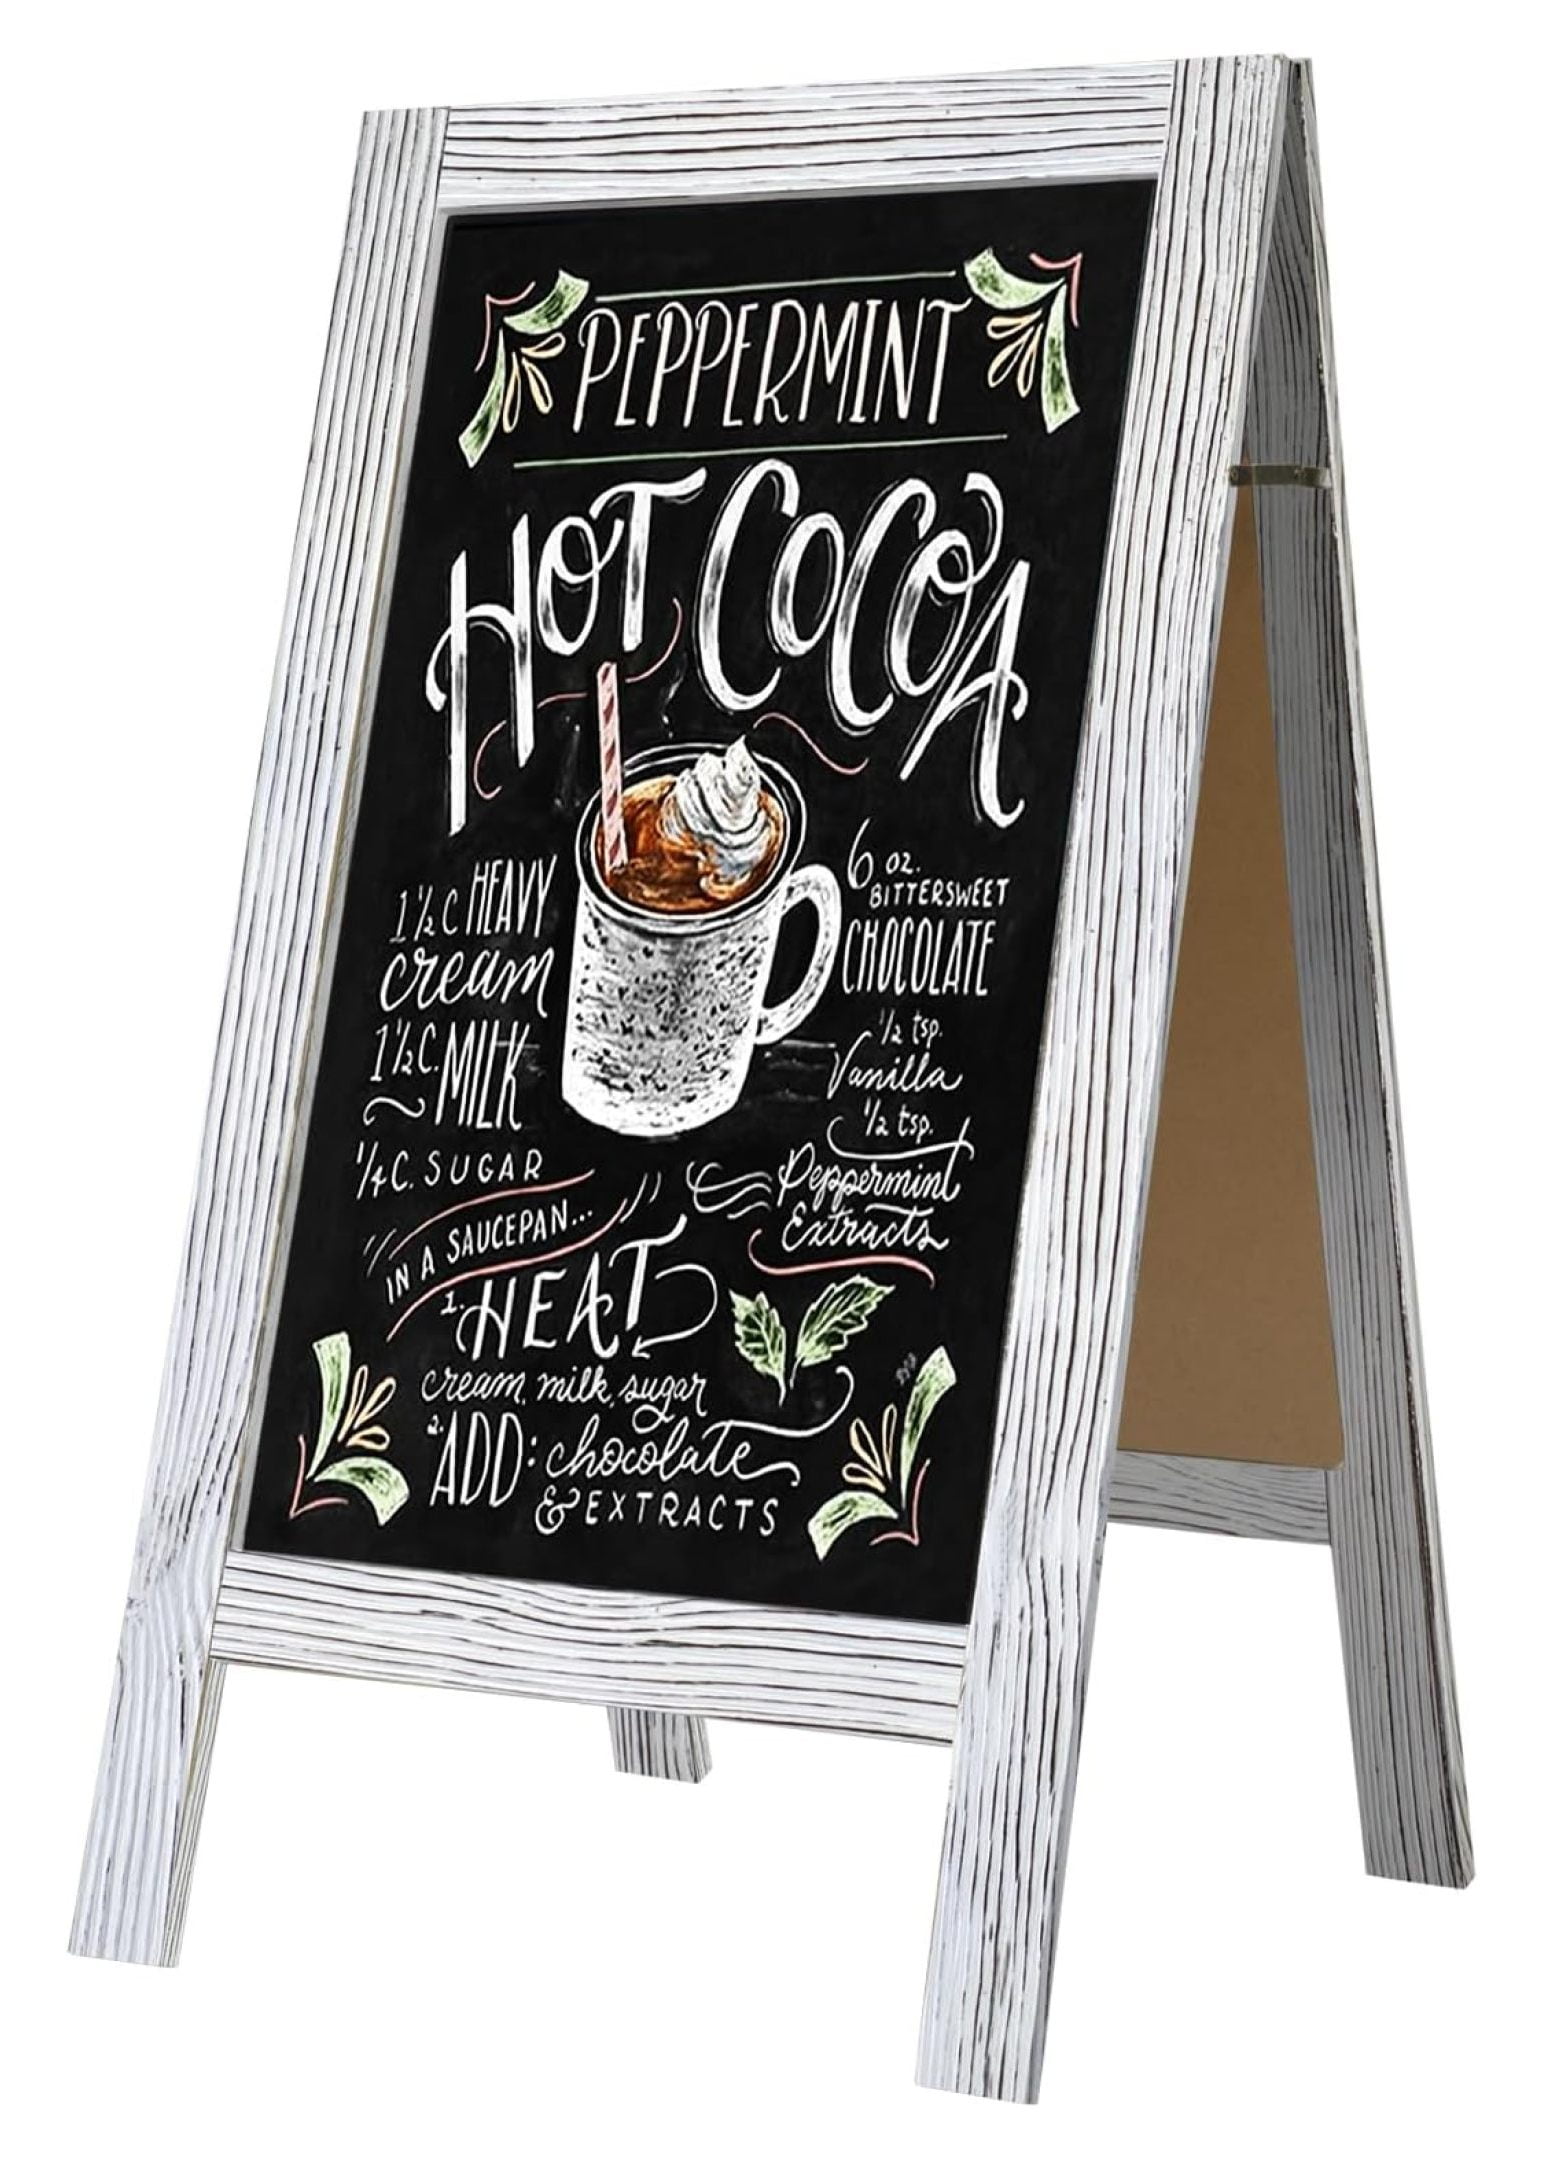 PEPPERMINT
HOT COCOA
1 1/2 C HEAVY
cream
1 1/2 C. MILK
1/4 C. SUGAR
6 OZ.
BITTERSWEET
CHOCOLATE
1/2 tsp.
Vanilla
1/2 tsp.
Peppermint
Extracts
IN A SAUCEPAN...
1. HEAT
cream, milk, sugar
2. ADD: chocolate
& EXTRACTS